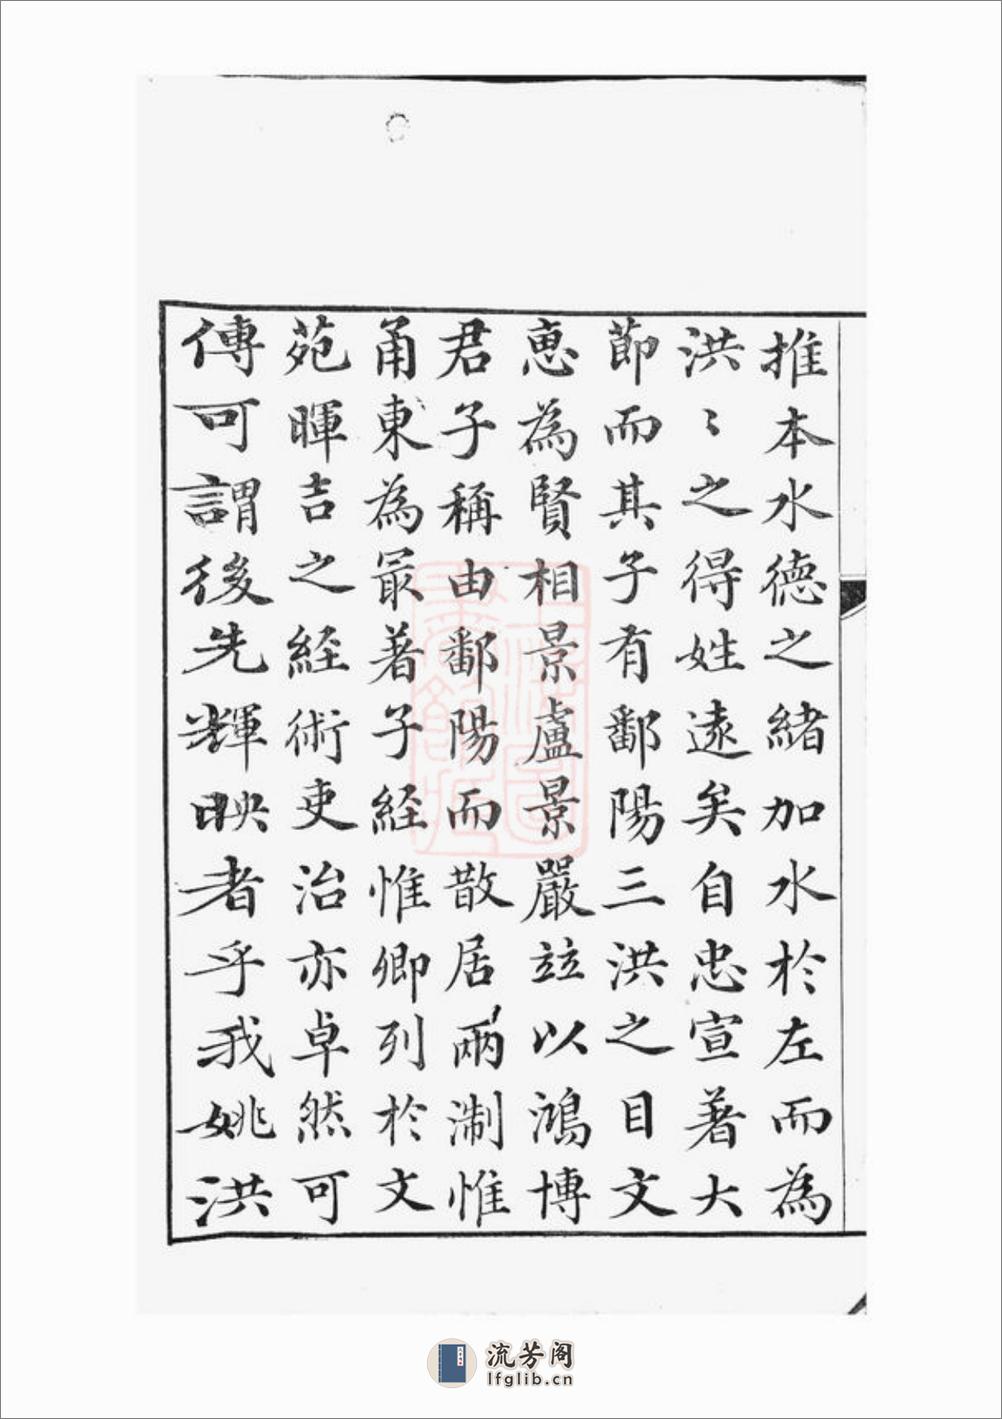 推本水德之緒加水於左而為
洪〻之得姓遠矣自忠宣著大
節而其子有鄱陽三洪之目文
惠為賢相景盧景嚴竝以鴻博
君子稱由鄱陽而散居兩淛惟
甬東為最著子經惟卿列於文
苑暉吉之經術吏治亦卓然可
傳可謂後先輝映者乎我姚洪
流芳阁
lfglib.cn